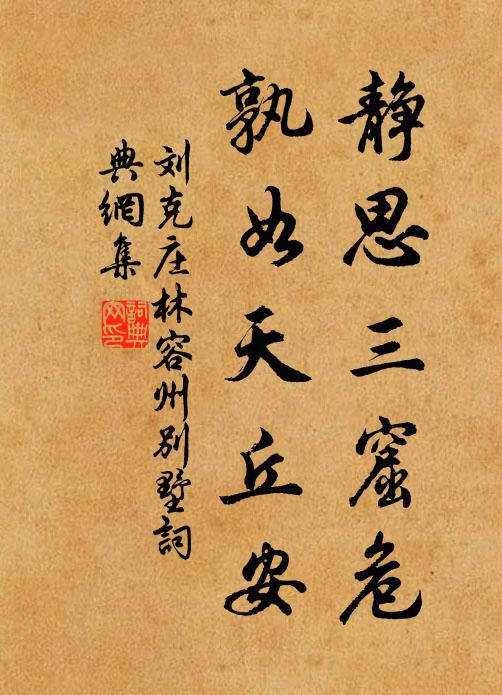 静思三窟危
孰如天丘安
刘克庄林容州别墅詞
典網集
詞典
网印